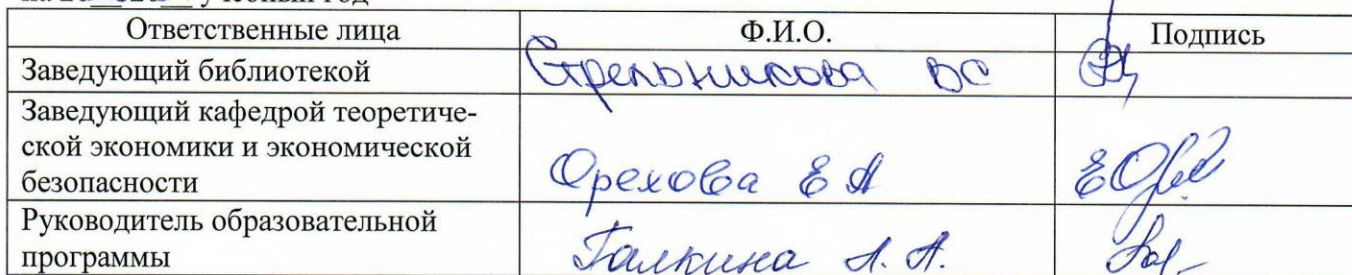 учебный год
Ответственные лица Ф.И.О. Подпись
Заведующий библиотекой Стрельникова ВС
Заведующий кафедрой теоретиче-
ской экономики и экономической
безопасности Орехова Е А
Руководитель образовательной
программы Галкина Л. А.